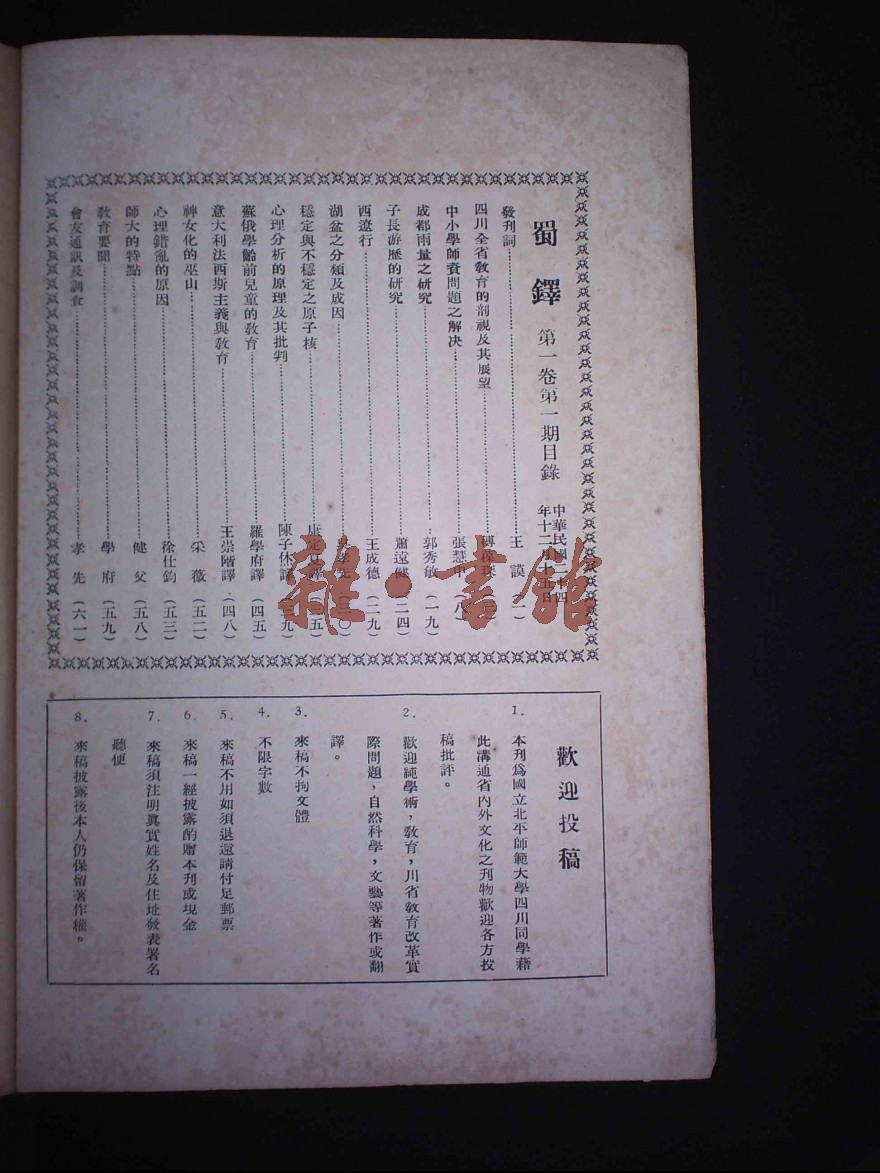 蜀鐸 第一卷第一期目錄
中華民國二十四
年十二月十五日
發刊詞……王 謨(一)
四川全省教育的剖視及其展望……
中小學師資問題之解決……張慧中(八)
成都雨量之研究……郭秀敏(一九)
子長游歷的研究……蕭遠健(二四)
西遼行……王成德(二九)
湖盆之分類及成因……(三〇)
穩定與不穩定之原子核……譯(三五)
心理分析的原理及其批判……陳子休譯(三九)
蘇俄學齡前兒童的教育……羅學府譯(四五)
意大利法西斯主義與教育……王崇階譯(四八)
神女化的巫山……采 薇(五二)
心理錯亂的原因……徐仕鈞(五三)
師大的特點……健 父(五八)
教育要聞……學 府(五九)
會友通訊及調查……孝 先(六一)
歡迎投稿
1. 本刊為國立北平師範大學四川同學藉
此溝通省內外文化之刊物歡迎各方投
稿批評。
2. 歡迎純學術,教育,川省教育改革實
際問題,自然科學,文藝等著作或翻
譯。
3. 來稿不拘文體
4. 不限字數
5. 來稿不用如須退還請付足郵票
6. 來稿一經披露酌贈本刊或現金
7. 來稿須注明真實姓名及住址發表署名
聽便
8. 來稿披露後本人仍保留著作權。
雜·書館